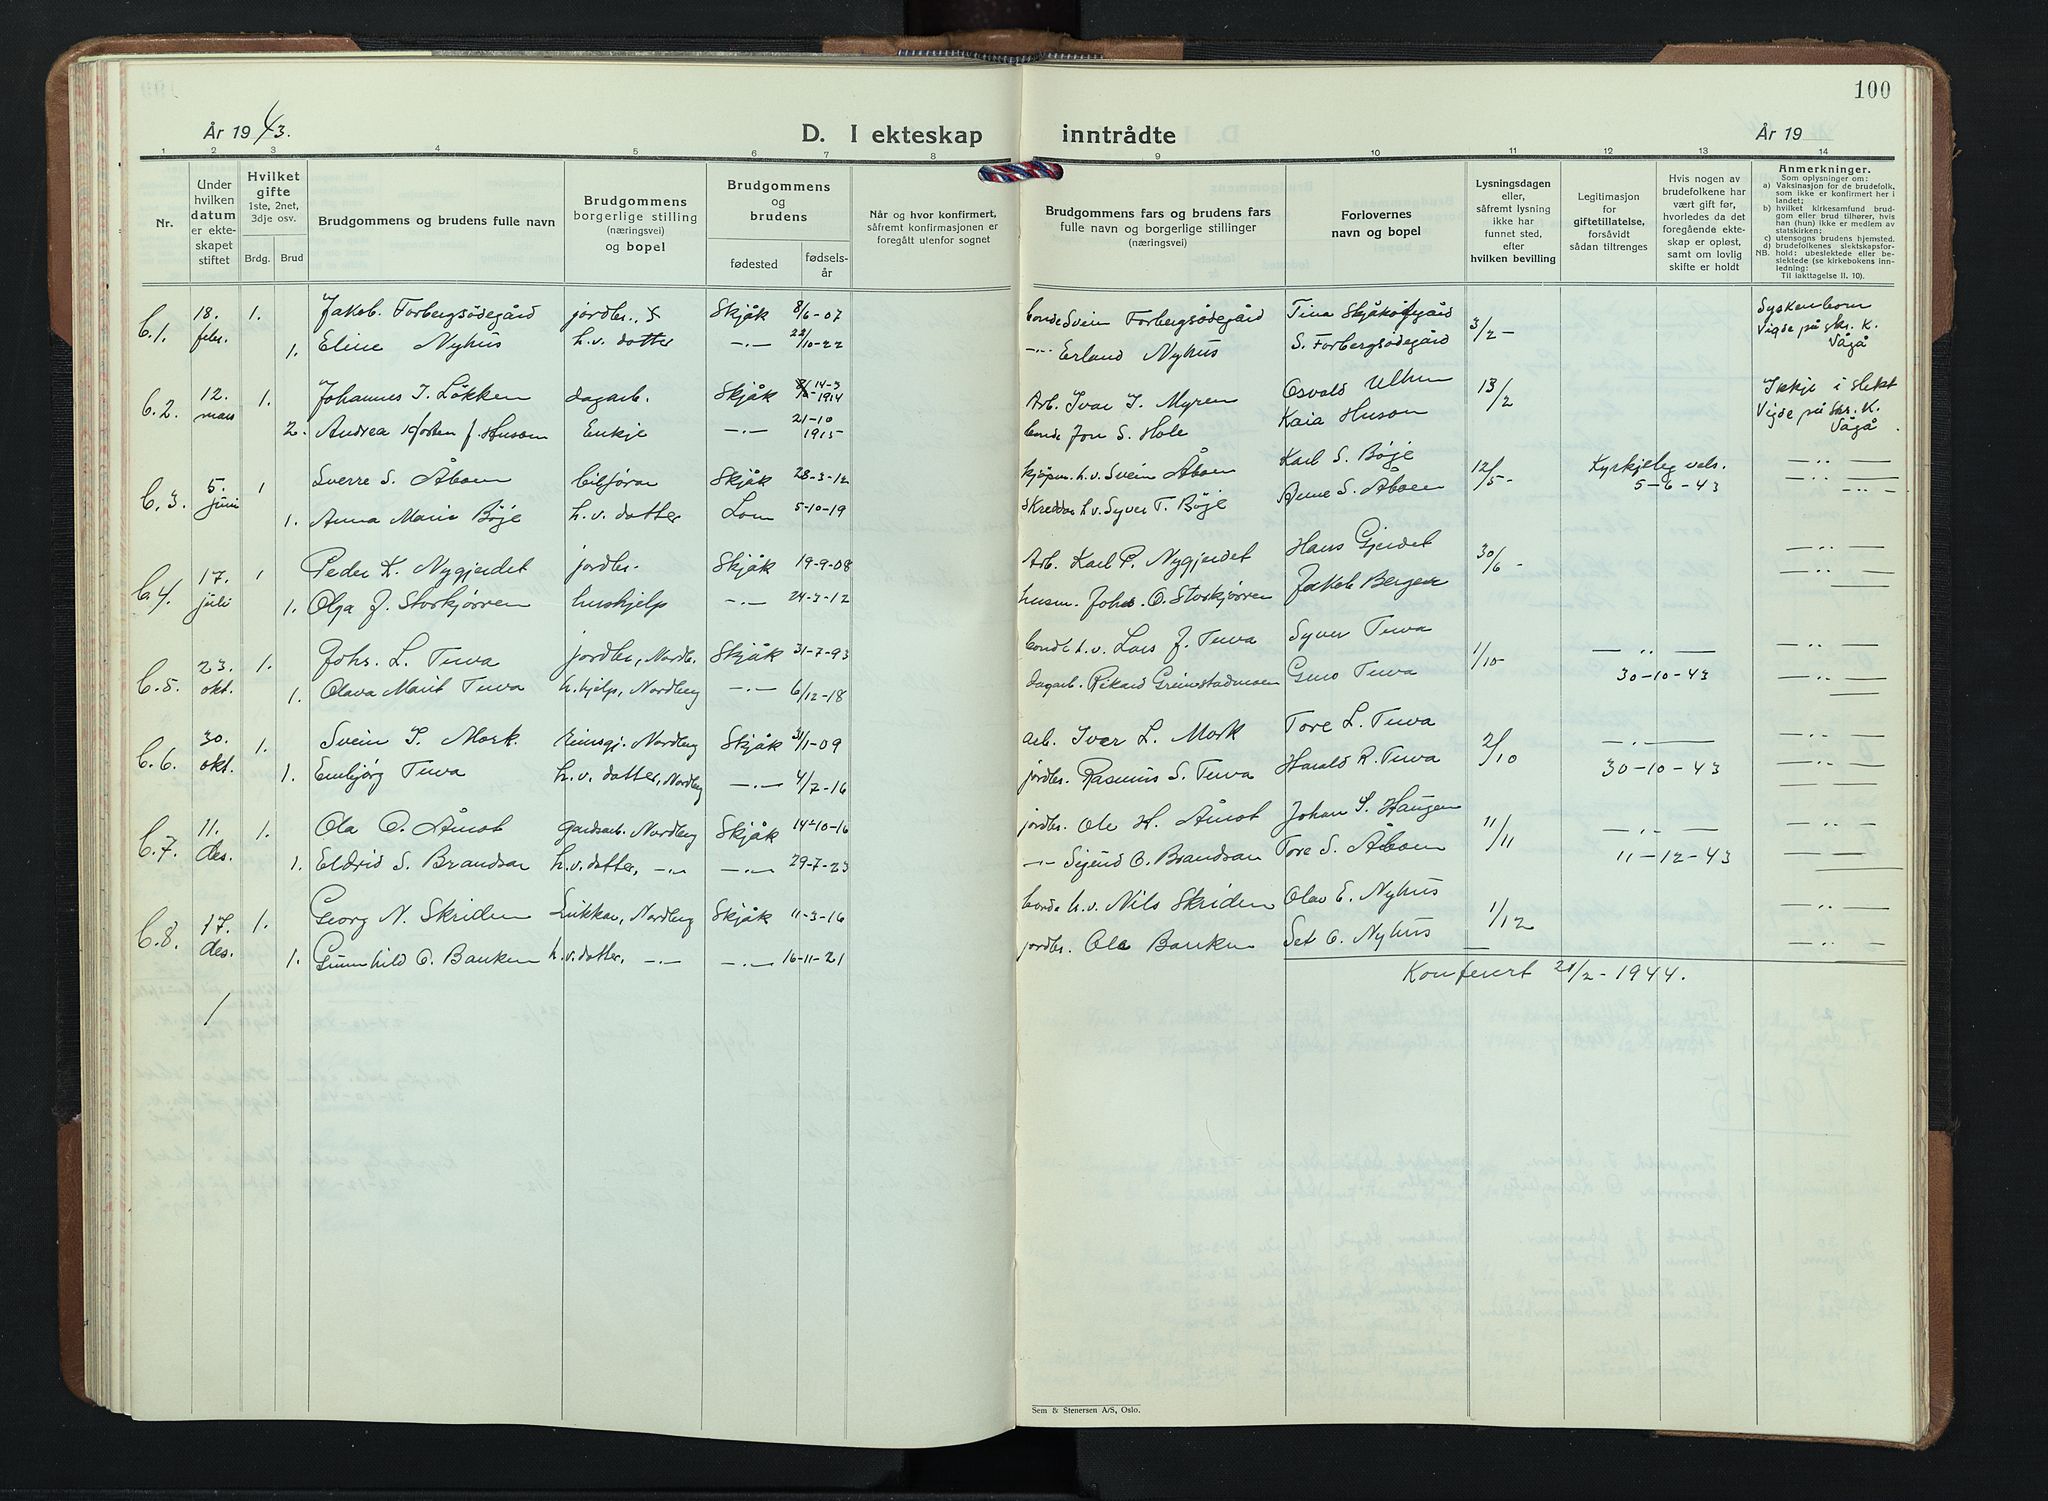 100
År 1943.
D. I ekteskap inntrådte
År 19
1 2 3 4 5 6 7 8 9 10 11 12 13 14
Nr.
Under hvilken datum er ekteskapet stiftet
Hvilket gifte 1ste, 2net, 3dje osv.
Brdg. Brud
Brudgommens og brudens fulle navn
Brudgommens borgerlige stilling (næringsvei) og bopel
Brudgommens og brudens
fødested
fødselsår
Når og hvor konfirmert, såfremt konfirmasjonen er foregått utenfor sognet
Brudgommens fars og brudens fars fulle navn og borgerlige stillinger (næringsvei)
Forlovernes navn og bopel
Lysningsdagen eller, såfremt lysning ikke har funnet sted, efter hvilken bevilling
Legitimasjon for giftetillatelse, forsåvidt sådan tiltrenges
Hvis nogen av brudefolkene har vært gift før, hvorledes da det foregående ekteskap er opløst, samt om lovlig skifte er holdt
Anmerkninger.
Som oplysninger om:
a) Vaksinasjon for de brudefolk, som ikke er konfirmert her i landet;
b) hvilket kirkesamfund brudgom eller brud tilhører, hvis han (hun) ikke er medlem av statskirken;
c) utensogns brudens hjemsted.
d) brudefolkenes slektskapsforhold: ubeslektede eller beslektede (se kirkebokens innledning:
NB.
Til iakttagelse II. 10).
C.1. 18. febr. 1. Jakob Forbergsødegård jordbr. Skjåk 8/6-07 Bonde Svein Forbergsødegård Tina 3/2- Syskenborn
1. Eline Nyhus h.v. datter -"- 22/10-22 -"- Erland Nyhus S. Forbergsødegård Vigde på skr. K. Vågå
C.2. 12. mars 1. Johannes I. Løkken dagarb. Skjåk 14-3-1914 Arb. Ivar J. Myren Osvald Ulhen 13/2 Ikkje i slekt
2. Andrea f. Huson Enkje -"- 21-10 1915 bonde Jon S. Hole Kaia Huson Vigde på Skr. K. Vågå
C.3. 5. juni 1 Sverre S. Åboen bilførar Skjåk 28-3-12 Kjøpm. h.v. Svein Åboen Karl S. Bøje 12/5- Kyrkjeleg vels. -"-
1. Anna Marie Bøje h.v. datter Lom 5-10-19 Skreddar h.v. Syver T. Bøje Anne S. Åboen 5-6-43 -"-
C.4. 17. juli 1 Peder K. Nygjerdet jordbr. Skjåk 19-9-08 Arb. Karl P. Nygjerdet Hans Gjerdet 30/6- -"-
1. Olga J. Storkjørren hushjelp -"- 24-3-12 husm. Johs. O. Storkjørren Jakob Bergen -"-
C.5. 23. okt. 1. Johs. L. Teva jordbr., Nordb. Skjåk 31-7-93 Bonde h.v. Lars J. Teva Syver Teva 1/10- -"- -"-
1. Olava Marit Teva h.hjelp, Nordberg -"- 6/12-18 Dagarb. Rikard Grimstadmoen Teva 30-10-43 -"-
C.6. 30. okt. 1. Svein I. Mork. Nordberg Skjåk 31/1-09 arb. Iver L. Mork Tore L. Teva 2/10 -"- -"-
1. Embjørg Teva h.v. datter, Nordberg -"- 4/7-16 jordbr. Rasmus S. Teva Harald R. Teva 30-10-43 -"-
C.7. 11. des. 1. Ola O. Åmot Gardsarb. Nordberg Skjåk 14-10-16 jordbr. Ole H. Åmot Johan S. Haugen 11/11 -"- -"-
1. Eldrid S. Brandsar h.v. datter, -"- -"- 29-7-23 -"- Sigurd O. Brandsar Tore S. Åboen 11-12-43 -"-
C.8. 17. des. 1. Georg N. Skriden Snikkar, Nordberg Skjåk 11-3-16 bonde h.v. Nils Skriden Olav E. Nyhus 1/12 -"-
1. Gunnhild O. Bakken h.v. datter, -"- -"- 16-11-21 jordbr. Ole Bakken Set O. Nyhus -"-
Konferert 21/2-1944.
Sem & Stenersen A/S, Oslo.